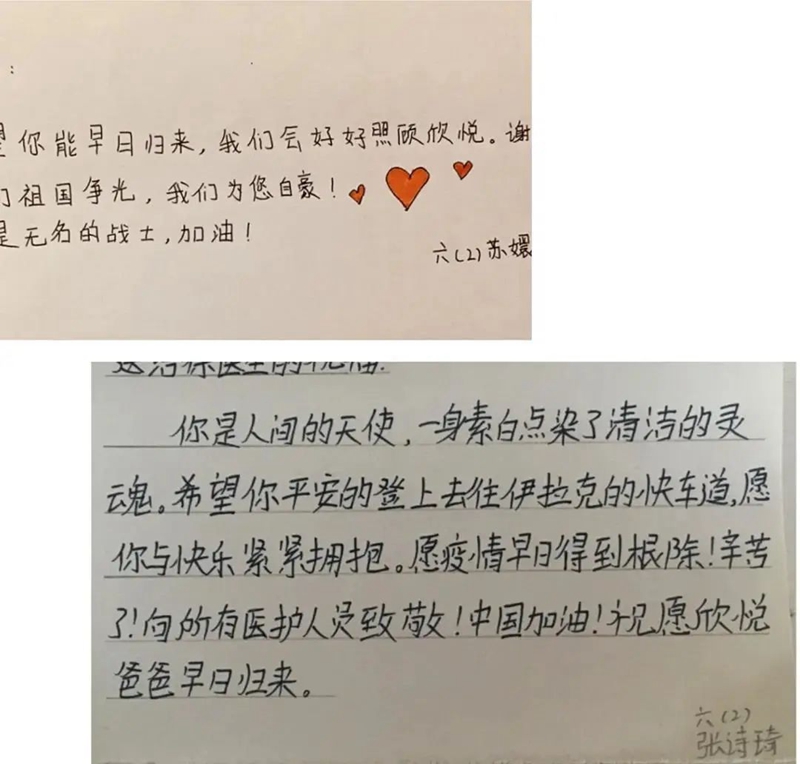 ：
望你能早日归来，我们会好好照顾欣悦。谢
们祖国争光，我们为您自豪！
是无名的战士，加油！
六(2)苏嬛
送给徐医生的祝福：
你是人间的天使，一身素白点染了清洁的灵
魂。希望你平安的登上去往伊拉克的快车道，愿
你与快乐紧紧拥抱。愿疫情早日得到根除！辛苦
了！向所有医护人员致敬！中国加油！祝愿欣悦
爸爸早日归来。
六(2)
张诗琦